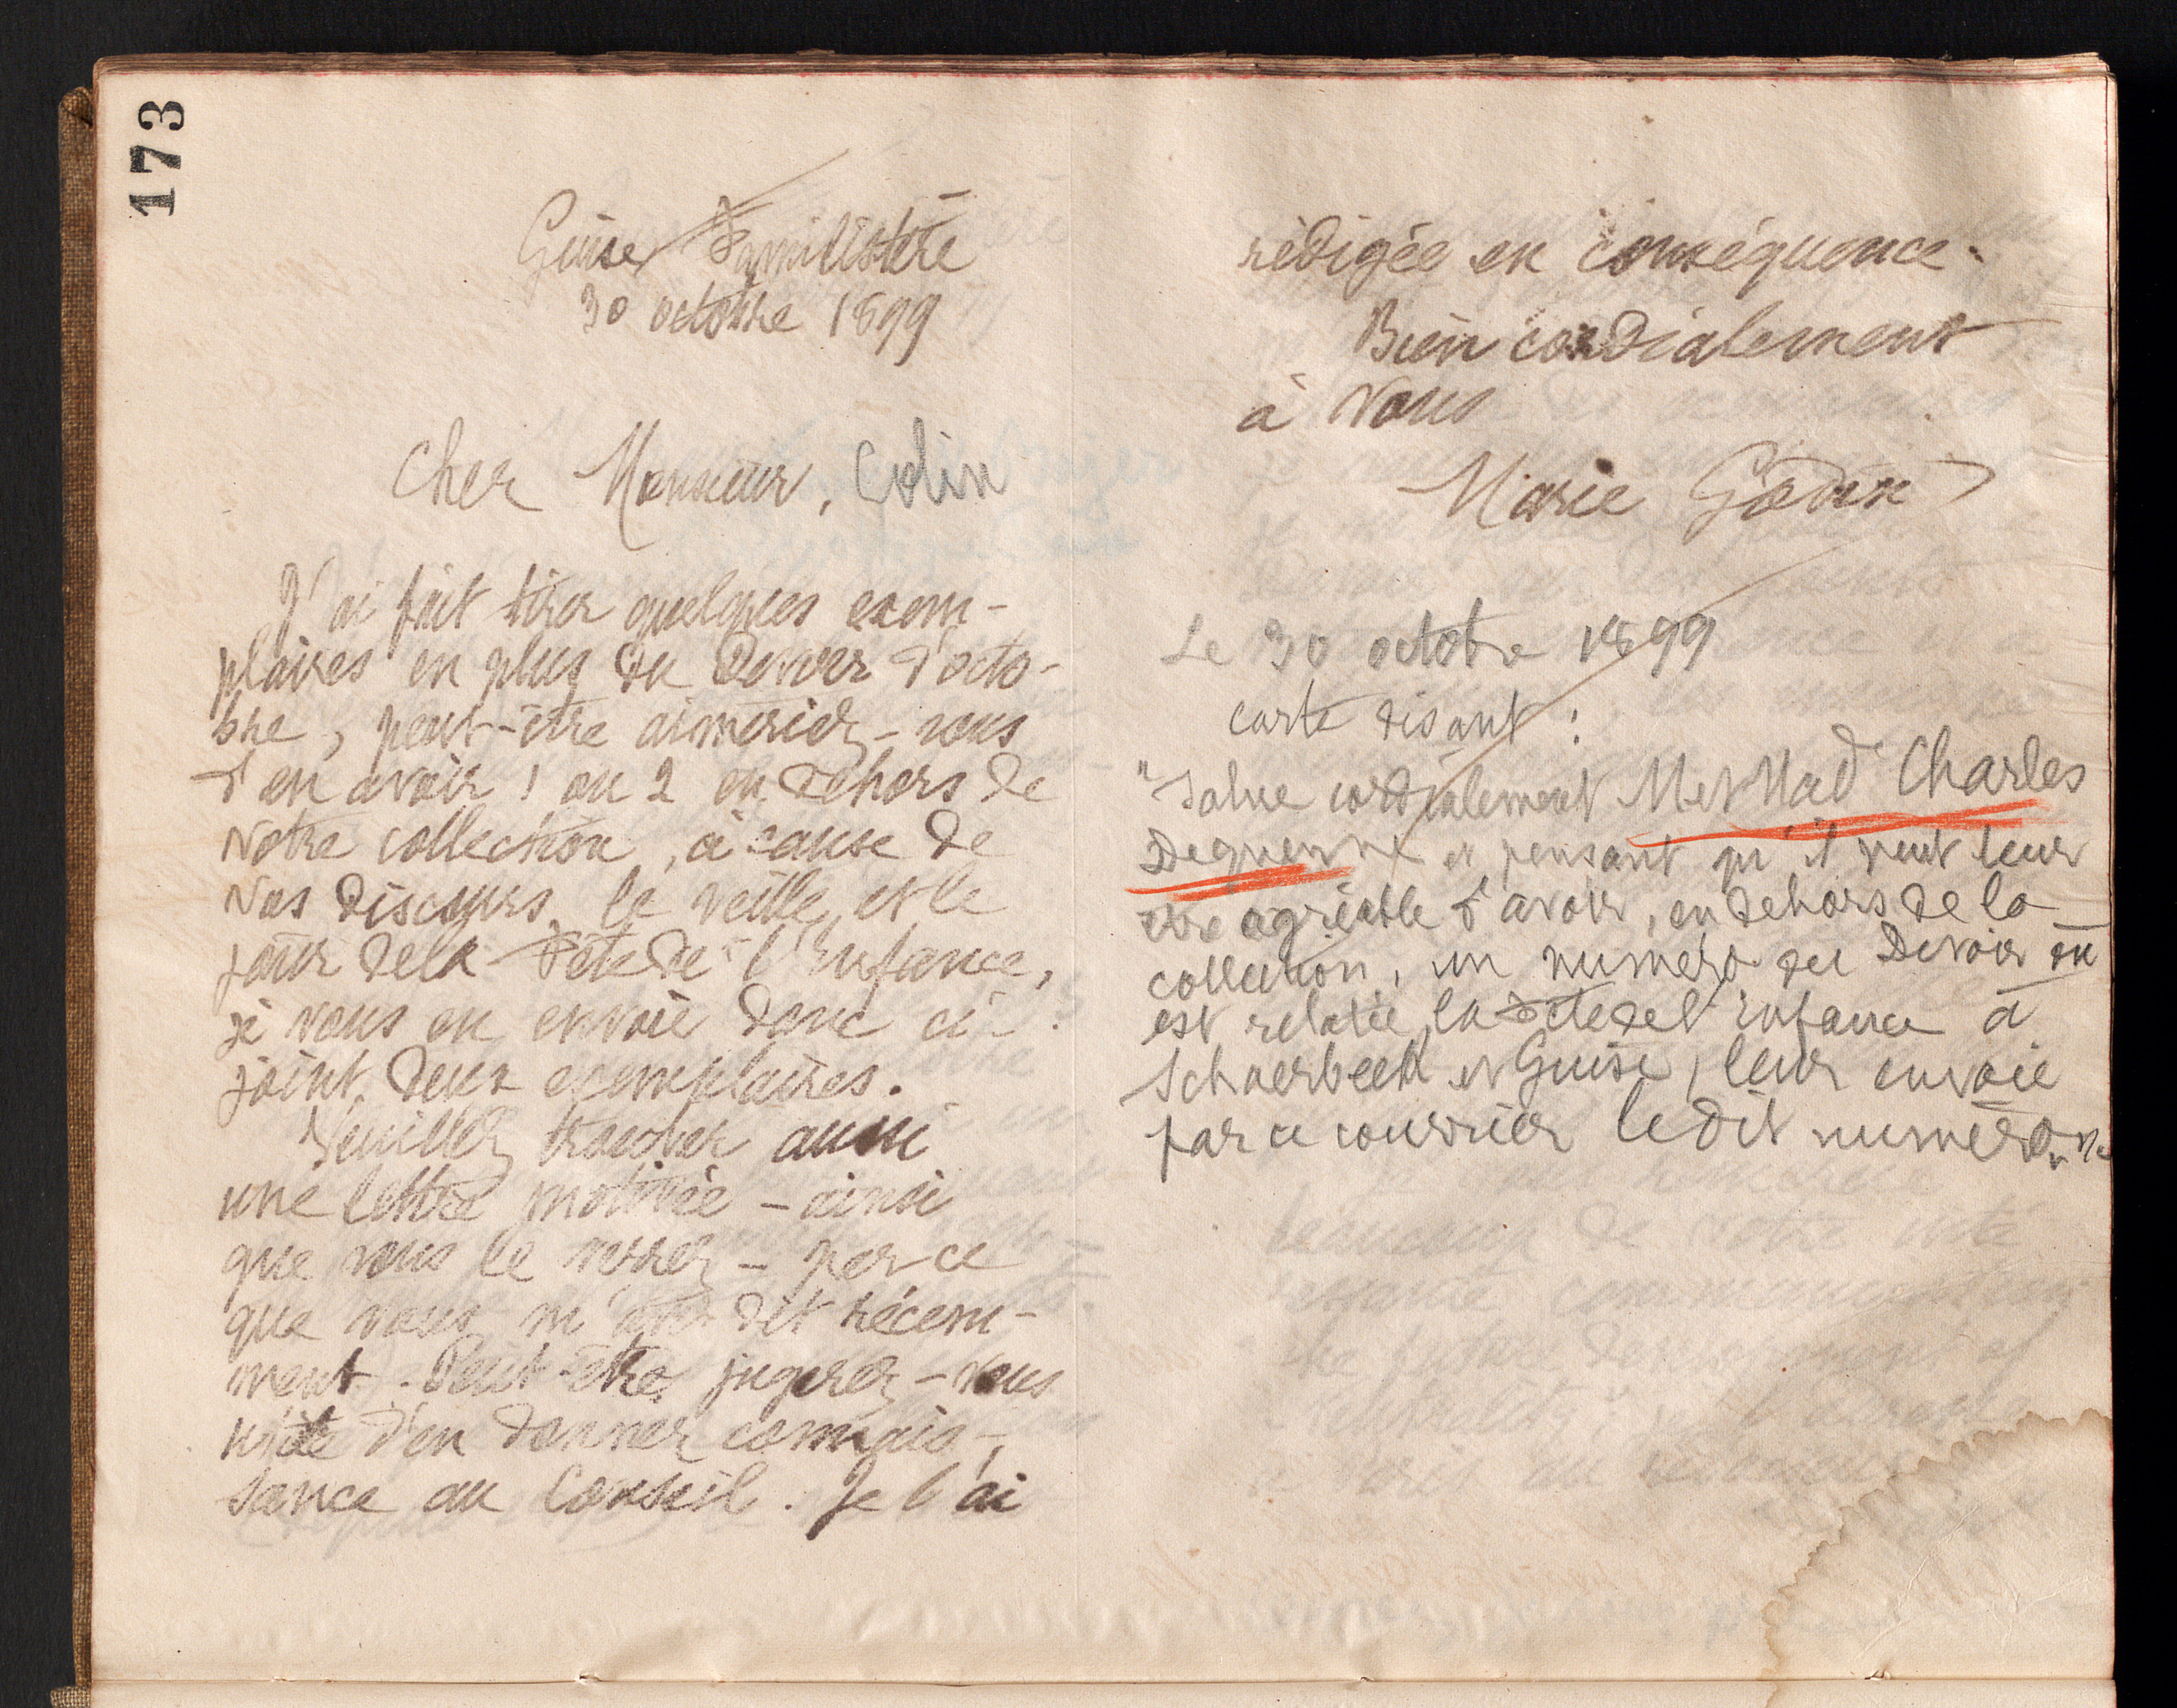 173
Guise Familistère
30 octobre 1899
Cher Monsieur, Colin
J'ai fait tirer quelques exem-
plaires en plus du Devoir d'octo-
bre, peut-être aimeriez-vous
d'en avoir 1 ou 2 en dehors de
votre collection, à cause de
vos discours, la veille et le
jour de la Fête de l'Enfance,
je vous en envoie donc ci-
joint deux exemplaires.
Veuillez trouver aussi
une lettre motivée - ainsi
que vous le verrez - par ce
que vous m'avez dit récem-
ment. Peut-être jugerez-vous
utile d'en donner connais-
sance au Conseil. Je l'ai
rédigée en conséquence.
Bien cordialement
à vous
Marie Godin
Le 30 octobre 1899
carte disant :
"Salue cordialement M et Mad Charles
Dequenne et pensant qu'il peut leur
être agréable d'avoir, en dehors de la
collection, un numéro du Devoir où
est relatée la Fête de l'Enfance à
Schaerbeek et Guise, leur envoie
par ce courrier le dit numéro.